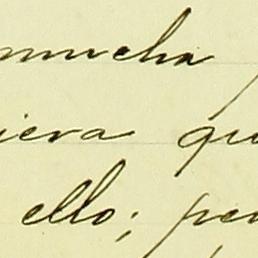 mucha
iera qu
ello; per